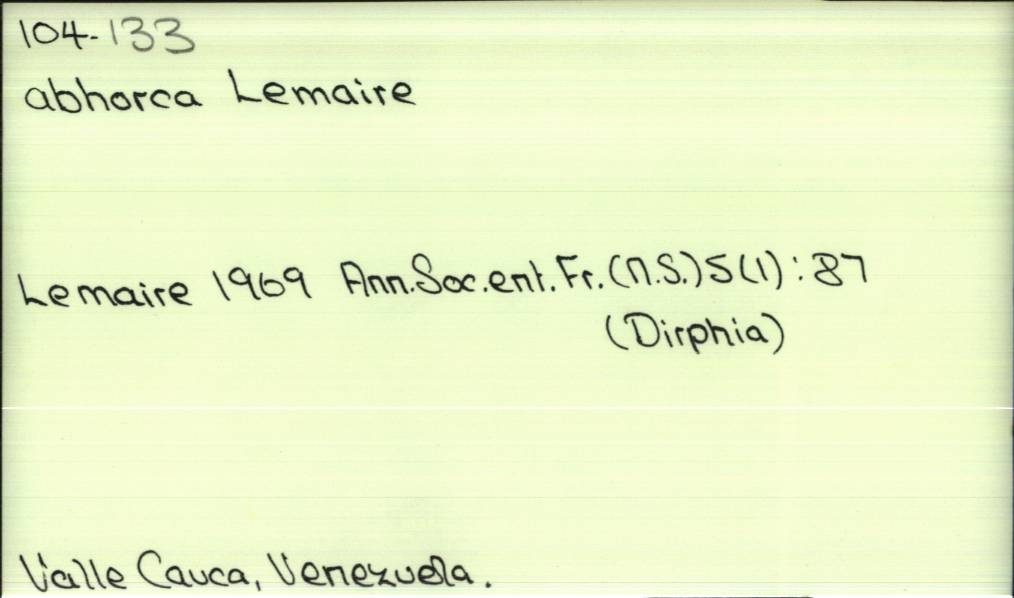 104-133
abhorca Lemaire
Lemaire 1969 Ann.Soc.ent.Fr.(N.S.)5(1):87
(Dirphia)
Valle Cauca, Venezuela.